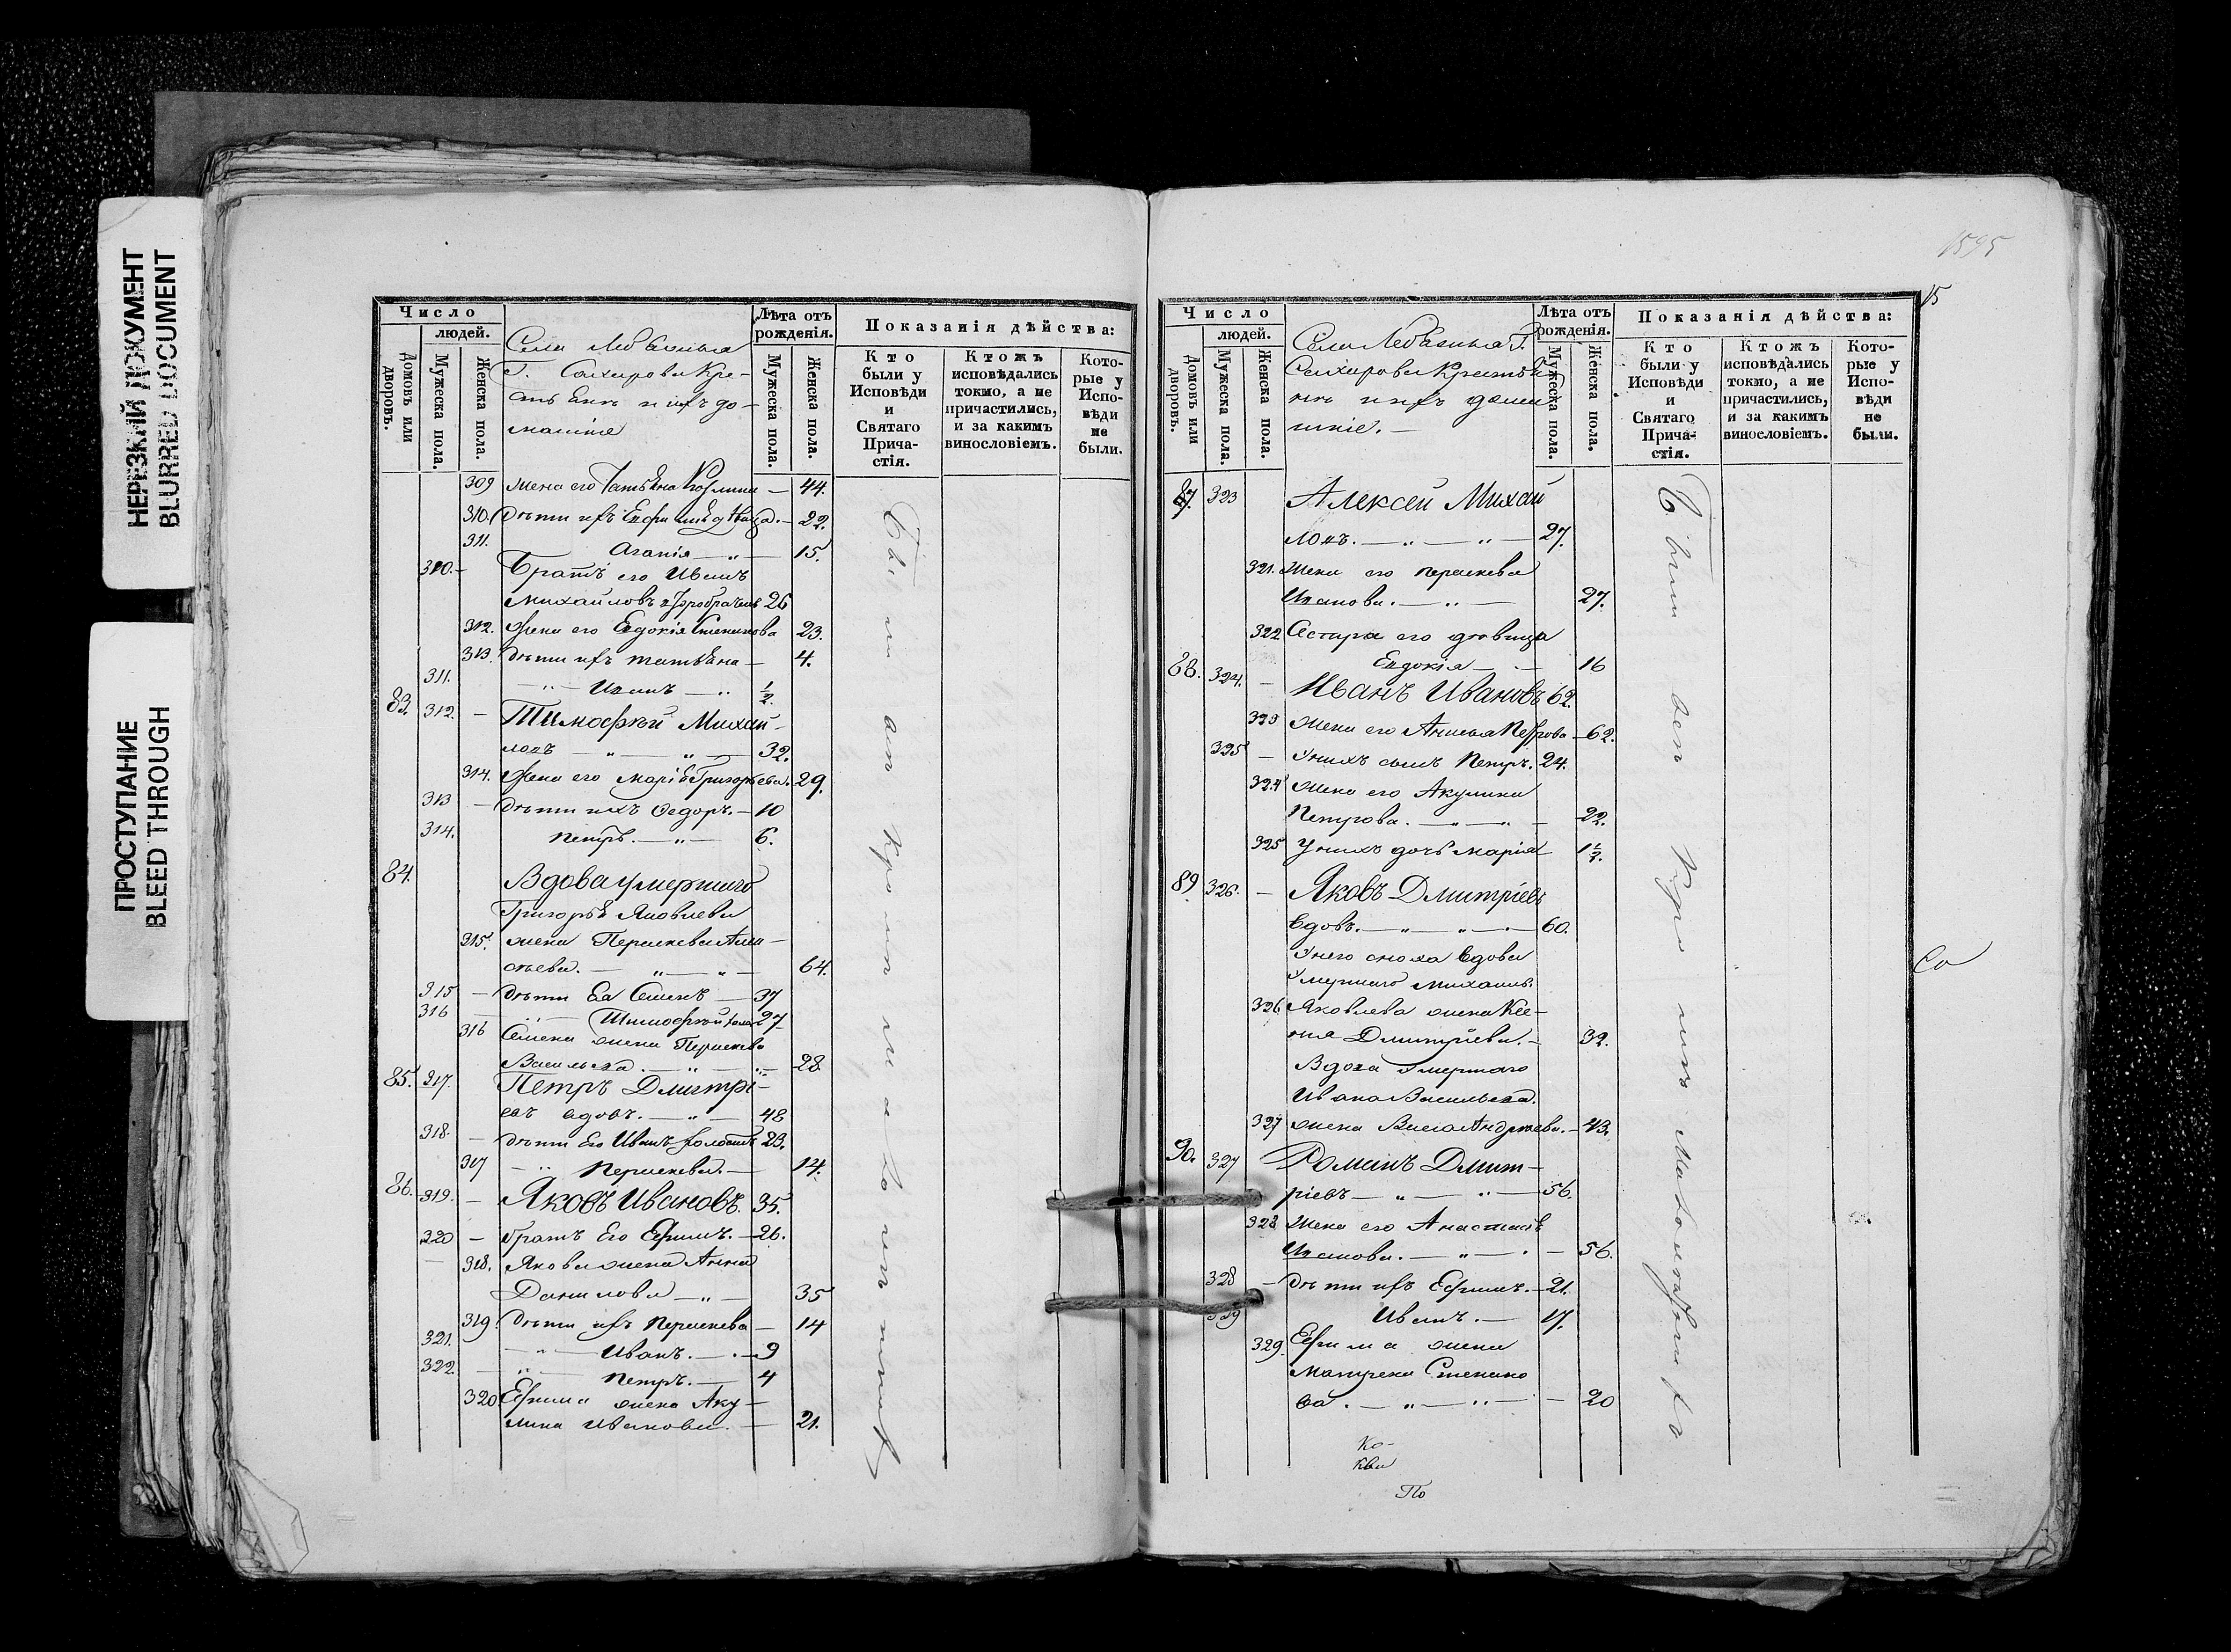 НЕРЕЗКИЙ ДОКУМЕНТ
BLURRED DOCUMENT
ПРОСТУПАНИЕ
BLEED THROUGH
Число
людей.
Домовъ или дворовъ.
Мужеска пола.
Женска пола.
Села
г. Кре-
и ихъ до-
машніе
Лѣта отъ рожденія.
Мужеска пола.
Женска пола.
Показанія дѣйства:
Кто были у Исповѣди и Святаго Прича-стія.
Ктожъ исповѣдались токмо, а не причастились, и за какимъ винословіемъ.
Кото-рые у Испо-вѣди не были.
309 жена его Татьяна — 44.
310. дѣти ихъ дѣвица. — 22.
311. Агапія — „ — 15.
310. — Братъ его Иванъ
Михайловъ 26
312. жена его Евдокія Степанова 23.
313. дѣти ихъ татьяна — 4.
311. — „ — Иванъ — „ ½
83. 312. — Тимофѣй Михай-
ловъ — „ — „ — 32.
314. жена его Марія Григорьева. 29.
313 — дѣти ихъ Ѳедоръ. — 10
314. Петръ. — „ — 6.
84. Вдова умершаго
Григорья Яковлева
315. жена Перасковья
— „ — „ — 64.
315 — дѣти Ея Семенъ — 37
316 — „ — Тимофѣй 27
316 Семена жена Перасковья
Васильева. — „ — 28
85. 317. Петръ Дмитрі-
евъ вдовъ. — „ — 48
318. — дѣти Его Иванъ холостъ 23.
317 — „ Перасковья. — 14.
86. 319. — Яковъ Ивановъ. 35.
320 — братъ Его Ефимъ. — 26.
318. Якова жена Анна
Данилова — „ — 35
319. дѣти ихъ Перасковья — 14
321. — „ — Иванъ. — . — 9
322. — „ — Петръ. — 4
320 Ефима жена Аку-
лина Иванова. — 21.
1595
15
Число
людей.
Домовъ или дворовъ.
Мужеска пола.
Женска пола.
Села г.
ихъ домаш
ніе. —
Лѣта отъ рожденія.
Мужеска пола.
Женска пола.
Показанія дѣйства:
Кто были у Исповѣди и Святаго Прича-стія.
Ктожъ исповѣдались токмо, а не причастились, и за какимъ винословіемъ.
Кото-рые у Испо-вѣди не были.
87. 323 Алексей Михай
ловъ. — „ — „ — 27.
321. Жена его Перасковья
Иванова. — „ — 27.
322 Сестра его дѣвица
Евдокія — . — 16
88. 324. — Иванъ Ивановъ 62.
323 жена его Петрова — 62.
325 — У нихъ сынъ Петръ. 24.
324 жена его Акулина
Петрова. — „ — „ — 22.
325 У нихъ дочь Марія — 1½.
89. 326. — Яковъ Дмитріевъ
вдовъ. — „ — „ — . — 60.
У него сноха вдова
Умершаго Михаила
326 Яковлева жена Ксе-
нія Дмитріева. — 32.
Вдова Умершаго
Ивана Васильева.
327 жена Андреева. — 43.
90. 327 Романъ Дмит-
ріевъ — „ — „ — 56.
328 Жена его Анастасія
Иванова. — „ — . — 56.
328 — дѣти ихъ Ефимъ. — 21.
329 Иванъ. — 17.
329. Ефима жена
Матрена Степано
ва. — „ — „ — — 20
Со
По